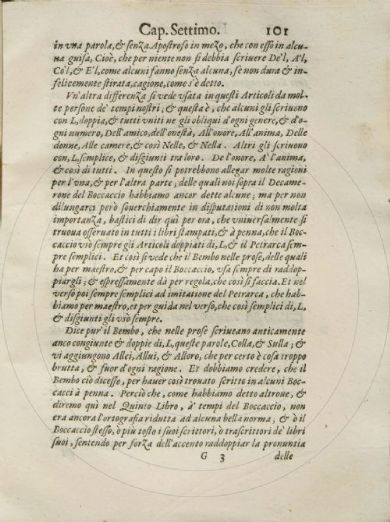 Cap. Settimo. 101
in vna parola, & senza Apostrofo in mezo, che con esso in alcu-
na guisa, Cioè, che per niente non si debbia scriuere De'l, A'l,
Co'l, & E'l, come alcuni fanno senza alcuna, se non dura & in-
felicemente stirata, cagione, come s'è detto.
Vn'altra differenza si vede vsata in questi Articoli da mol-
te persone de' tempi nostri, & questa è, che alcuni gli scriueno
con L, doppia, & tutti vniti ne gli obliqui d'ogni genere, & d'o-
gni numero, Dell'amico, dell'onestà, All'onore, All'anima, Delle
donne, Alle camere, & così Nelle, & Nella. Altri gli scriueno
con, L, semplice, & disgiunti tra loro. De l'onore, A' l'anima,
& così di tutti. In questo si potrebbono allegar molte ragioni
per l'vna, & per l'altra parte, delle quali noi sopra il Decame-
rone del Boccaccio habbiamo ancor dette alcune; ma per non
dilungarci però souerchiamente in disputationi di non molta
importanza, bastici di dir quì per ora, che vniuersalmente si
truoua osseruato in tutti i libri stampati, & à penna, che il Boc-
caccio vsò sempre gli Articoli doppiati di, L, & il Petrarca sem-
pre semplici. Et così si vede che il Bembo nelle prose, delle quali
ha per maestro, & per capo il Boccaccio, vsa sempre di raddop-
piargli; & espressamente dà per regola, che così si faccia. Et nel
verso poi sempre semplici ad imitatione del Petrarca, che hab-
biamo per maestro, et per guida nel verso, che così semplici di, L,
& disgiunti gli vsò sempre.
Dice pur'il Bembo, che nelle prose scriueano anticamente
anco congiunte & doppie di, L, queste parole, Colla, & Sulla; &
vi aggiungono Allei, Allui, & Alloro, che per certo è cosa troppo
brutta, & fuor d'ogni ragione. Et dobbiamo credere, che il
Bembo ciò dicesse, per hauer così trouato scritto in alcuni Boc-
cacci à penna. Perciò che, come habbiamo detto altroue, &
diremo quì nel Quinto Libro, à' tempi del Boccaccio, non
era ancora l'ortografia ridutta ad alcuna bella norma, & ò il
Boccaccio stesso, ò più tosto i suoi scrittori, ò trascrittori de' libri
suoi, sentendo per forza dell'accento raddoppiar la pronuntia
G 3 delle